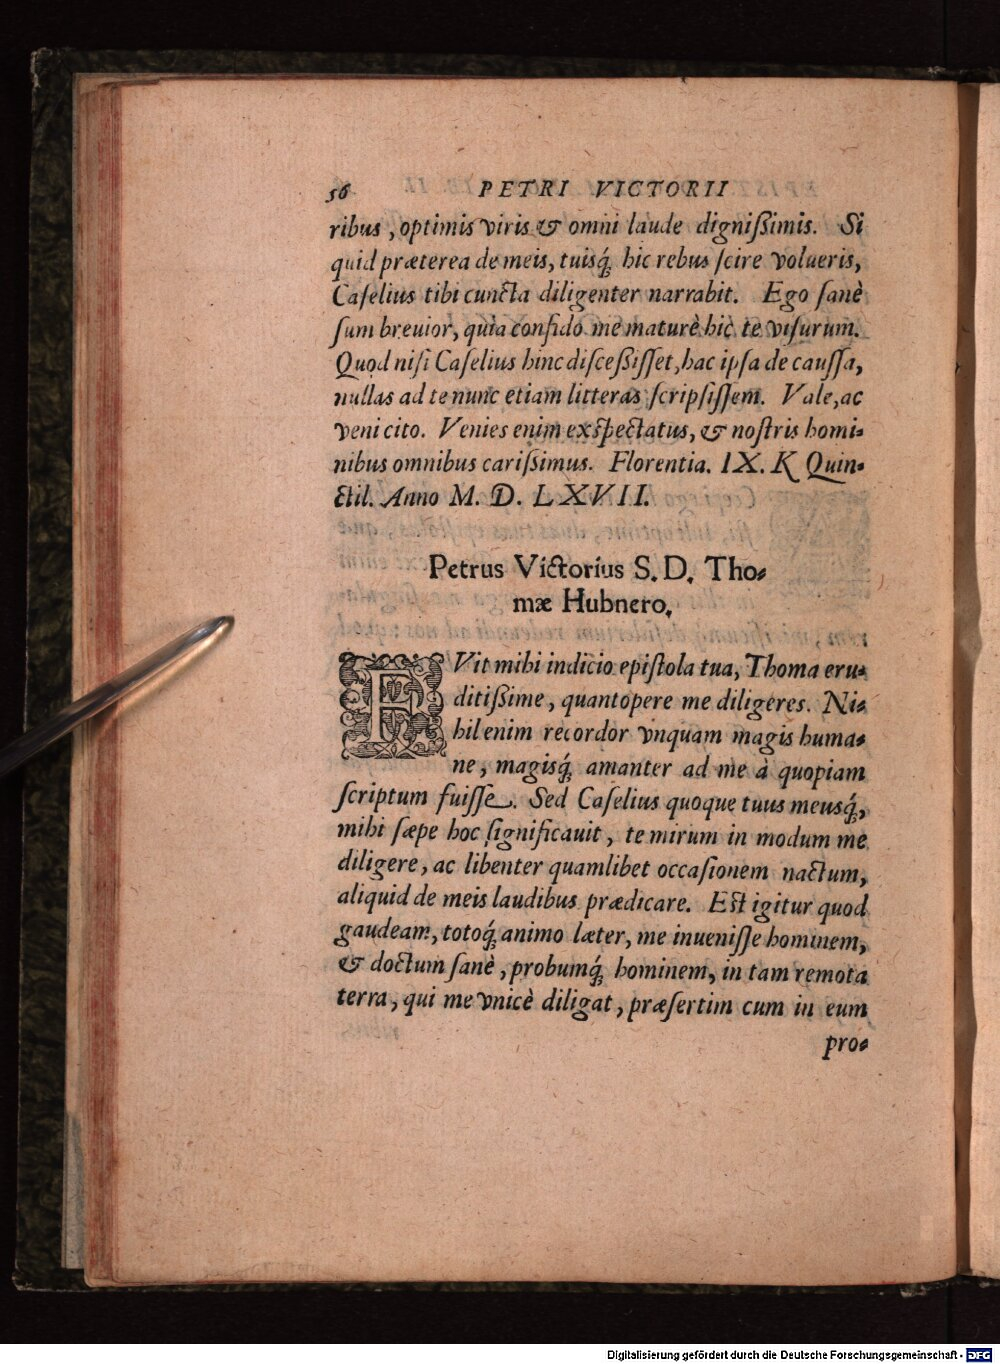 56 PETRI VICTORII
ribus, optimis viris & omni laude dignißimis. Si
quid præterea de meis, tuisq́; hic rebus ſcire volueris,
Caſelius tibi cuncta diligenter narrabit. Ego ſanè
ſum breuior, quia confido me maturè hic te viſurum.
Quod niſi Caſelius hinc diſceßiſſet, hac ipſa de cauſſa,
nullas ad te nunc etiam litteras ſcripſiſſem. Vale, ac
veni cito. Venies enim exſpectatus, & noſtris homi-
nibus omnibus carißimus. Florentia. IX. K Quin-
ctil. Anno M. D. LXVII.
Petrus Victorius S. D. Tho-
mæ Hubnero.
FVit mihi indicio epiſtola tua, Thoma eru-
ditißime, quantopere me diligeres. Ni-
hil enim recordor vnquam magis huma-
ne, magisq́; amanter ad me à quopiam
ſcriptum fuiſſe. Sed Caſelius quoque tuus meusq́;,
mihi ſæpe hoc ſignificauit, te mirum in modum me
diligere, ac libenter quamlibet occaſionem nactum,
aliquid de meis laudibus prædicare. Eſt igitur quod
gaudeam, totoq́; animo læter, me inueniſſe hominem,
& doctum ſanè, probumq́; hominem, in tam remota
terra, qui me vnicè diligat, præſertim cum in eum
pro-
Digitalisierung gefördert durch die Deutsche Forschungsgemeinschaft - DFG